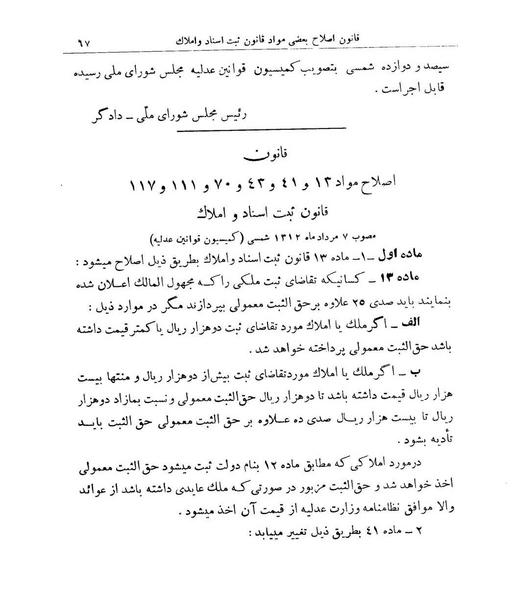 قانون اصلاح بعضی مواد قانون ثبت اسناد و املاك ۶۷
سیصد و دوازده شمسی بتصویب کمیسیون قوانین عدلیه مجلس شورای ملی رسیده
قابل اجراست .
رئیس مجلس شورای ملّی ــ دادگر
قانون
اصلاح مواد ۱۳ و ۴۱ و ۴۳ و ۷۰ و ۱۱۱ و ۱۱۷
قانون ثبت اسناد و املاك
مصوب ۷ مردادماه ۱۳۱۲ شمسی (کمیسیون قوانین عدلیه)
ماده اول ــ ۱ــ ماده ۱۳ قانون ثبت اسناد واملاك بطریق ذیل اصلاح میشود :
ماده ۱۳ ــ کسانیکه تقاضای ثبت ملکی را که مجهول المالك اعلان شده
بنمایند باید صدی ۲۵ علاوه بر حق الثبت معمولی بپردازند مگر در موارد ذیل :
الف ــ اگر ملك یا املاك مورد تقاضای ثبت دوهزار ریال یا کمتر قیمت داشته
باشد حق الثبت معمولی پرداخته خواهد شد .
ب ــ اگر ملك یا املاك مورد تقاضای ثبت بیش از دوهزار ریال و منتها بیست
هزار ریال قیمت داشته باشد تا دوهزار ریال حق الثبت معمولی و نسبت بمازاد دوهزار
ریال تا بیست هزار ریال صدی ده علاوه بر حق الثبت معمولی حق الثبت باید
تأدیه بشود .
درمورد املاکی که مطابق ماده ۱۲ بنام دولت ثبت میشود حق الثبت معمولی
اخذ خواهد شد و حق الثبت مزبور در صورتی که ملك عایدی داشته باشد از عوائد
والا موافق نظامنامه وزارت عدلیه از قیمت آن اخذ میشود .
۲ ــ ماده ۴۱ بطریق ذیل تغییر مییابد :